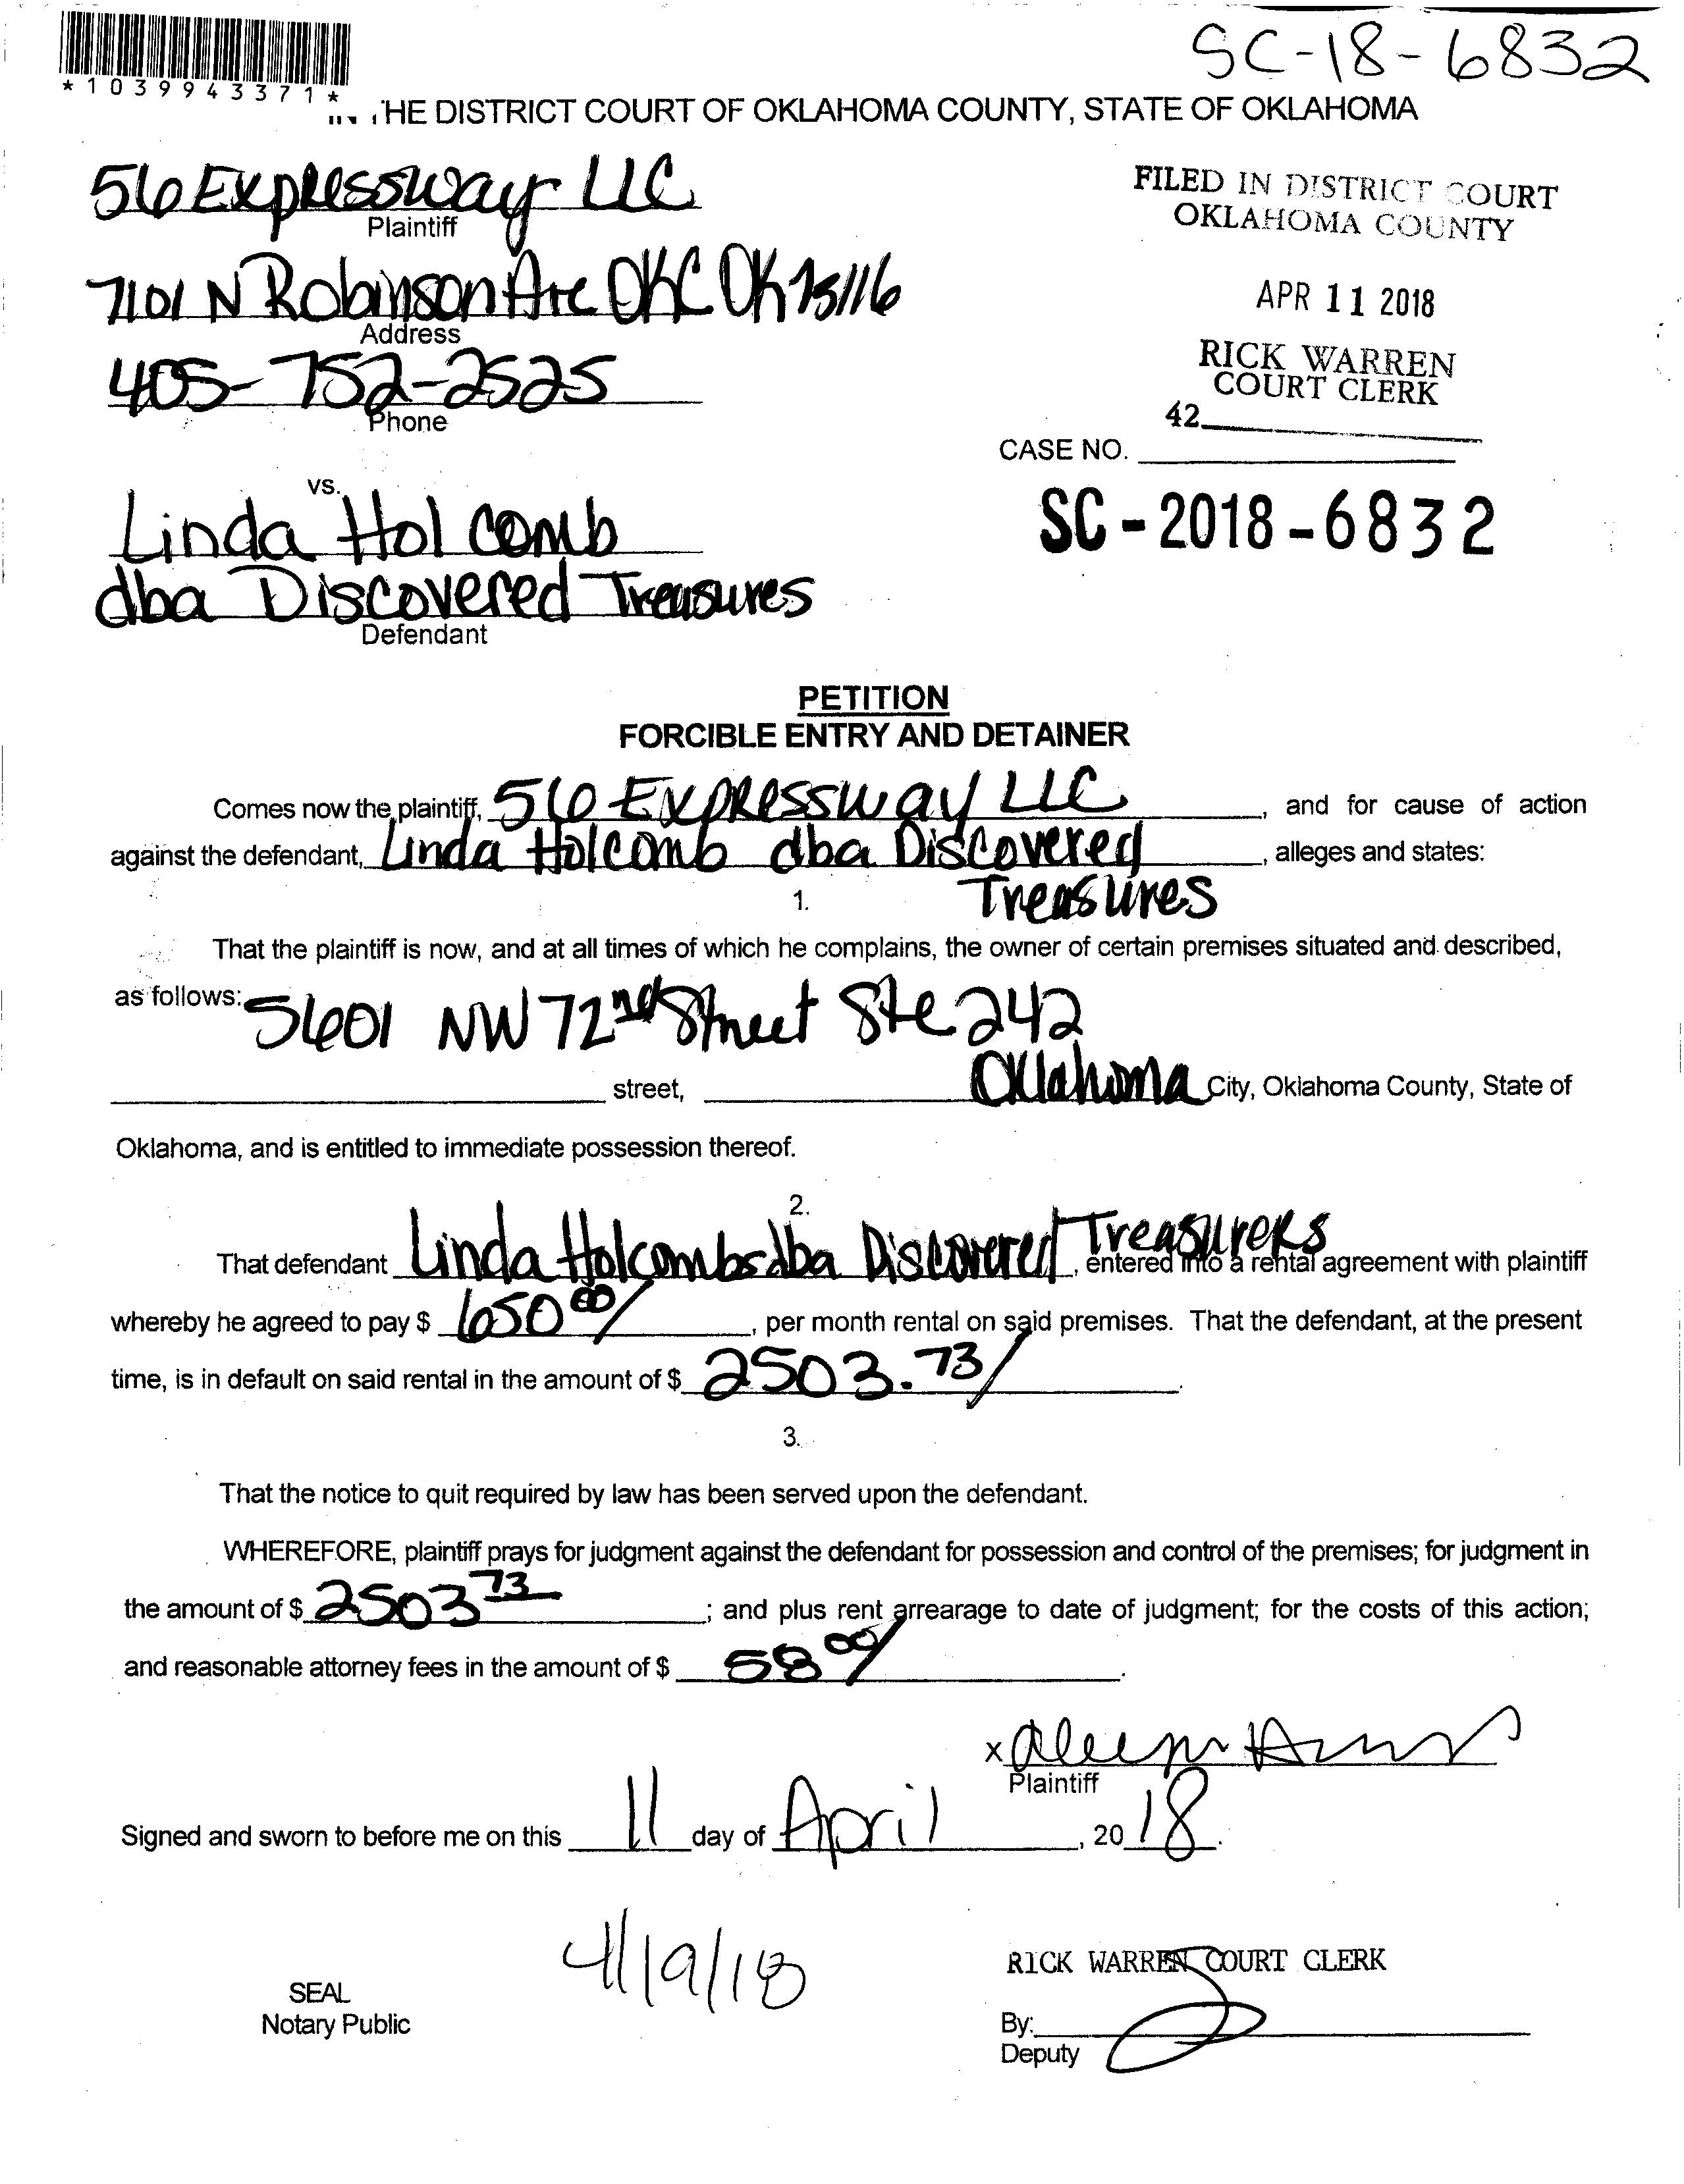 SC-18-6832
*1039943371*
IN THE DISTRICT COURT OF OKLAHOMA COUNTY, STATE OF OKLAHOMA
56 Expressway LLC
Plaintiff
FILED IN DISTRICT COURT
OKLAHOMA COUNTY
7101 N Robinson Ave OKC OK 73116
Address
APR 11 2018
405-752-2525
Phone
RICK WARREN
COURT CLERK
42
CASE NO.
vs.
Linda Holcomb
SC-2018-6832
dba Discovered Treasures
Defendant
PETITION
FORCIBLE ENTRY AND DETAINER
Comes now the plaintiff, 56 Expressway LLC, and for cause of action
against the defendant, Linda Holcomb dba Discovered, alleges and states:
Treasures
1.
That the plaintiff is now, and at all times of which he complains, the owner of certain premises situated and described,
as follows: 5601 NW 72nd Street Ste 242
street, Oklahoma City, Oklahoma County, State of
Oklahoma, and is entitled to immediate possession thereof.
2.
That defendant Linda Holcombs dba Discovered Treasurers, entered into a rental agreement with plaintiff
whereby he agreed to pay $ 650 00/, per month rental on said premises. That the defendant, at the present
time, is in default on said rental in the amount of $ 2503.73/.
3.
That the notice to quit required by law has been served upon the defendant.
WHEREFORE, plaintiff prays for judgment against the defendant for possession and control of the premises; for judgment in
the amount of $ 2503 73; and plus rent arrearage to date of judgment; for the costs of this action;
and reasonable attorney fees in the amount of $ 58 00/.
x
Plaintiff
Signed and sworn to before me on this 11 day of April, 2018.
4/19/18
RICK WARREN COURT CLERK
SEAL
Notary Public
By:
Deputy